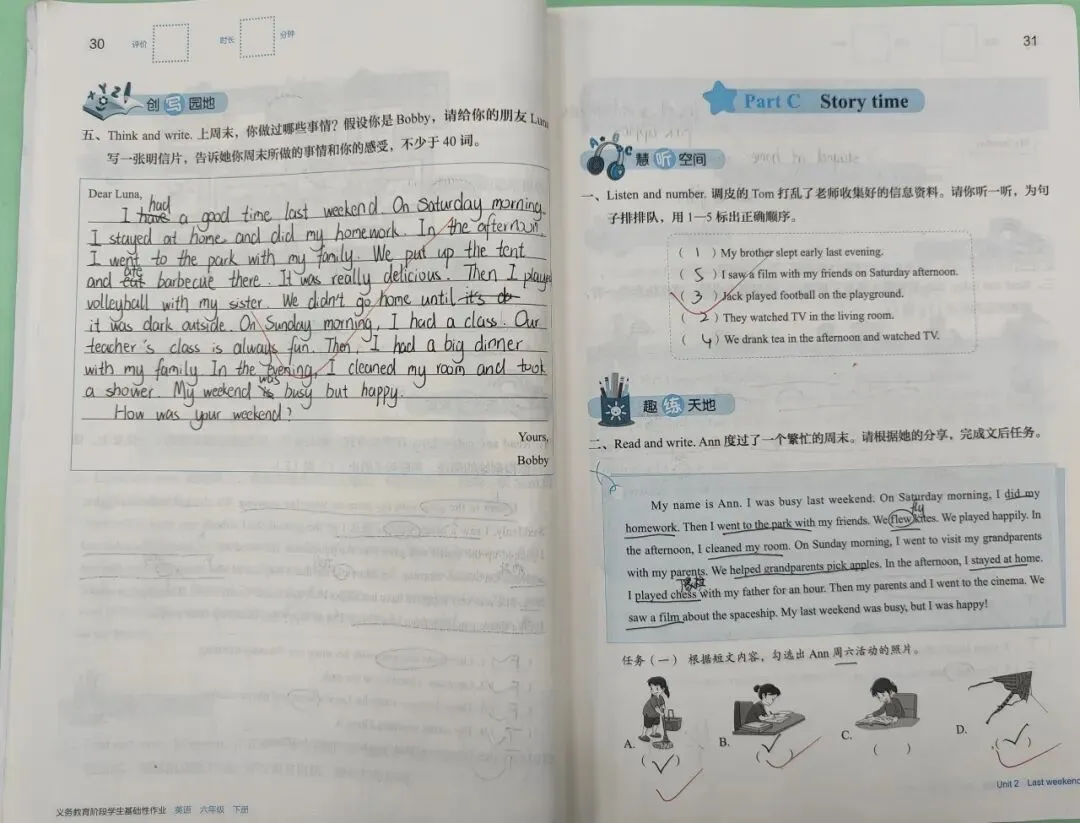 30
评价
时长
分钟
创写园地
五、Think and write. 上周末，你做过哪些事情？假设你是 Bobby，请给你的朋友 Luna
写一张明信片，告诉她你周末所做的事情和你的感受，不少于 40 词。
Dear Luna,
had
I have a good time last weekend. On Saturday morning.
I stayed at home and did my homework. In the afternoon,
I went to the park with my family. We put up the tent
ate
and eat barbecue there. It was really delicious. Then I played
volleyball with my sister. We didn't go home until it's da
it was dark outside. On Sunday morning, I had a class. Our
teacher's class is always fun. Then, I had a big dinner
with my family In the evening, I cleaned my room and took
was
a shower. My weekend is busy but happy.
How was your weekend?
Yours,
Bobby
义务教育阶段学生基础性作业 英语 六年级 下册
31
Part C Story time
A B C
慧听空间
一、Listen and number. 调皮的 Tom 打乱了老师收集好的信息资料。请你听一听，为句
子排排队，用 1—5 标出正确顺序。
( 1 ) My brother slept early last evening.
( 5 ) I saw a film with my friends on Saturday afternoon.
( 3 ) Jack played football on the playground.
( 2 ) They watched TV in the living room.
( 4 ) We drank tea in the afternoon and watched TV.
趣练天地
二、Read and write. Ann 度过了一个繁忙的周末。请根据她的分享，完成文后任务。
My name is Ann. I was busy last weekend. On Saturday morning, I did my
fly
homework. Then I went to the park with my friends. We flew kites. We played happily. In
the afternoon, I cleaned my room. On Sunday morning, I went to visit my grandparents
with my parents. We helped grandparents pick apples. In the afternoon, I stayed at home.
I played chess with my father for an hour. Then my parents and I went to the cinema. We
saw a film about the spaceship. My last weekend was busy, but I was happy!
任务（一） 根据短文内容，勾选出 Ann 周六活动的照片。
A. B. C. D.
(✓) (✓) ( ) (✓)
Unit 2 Last weekend